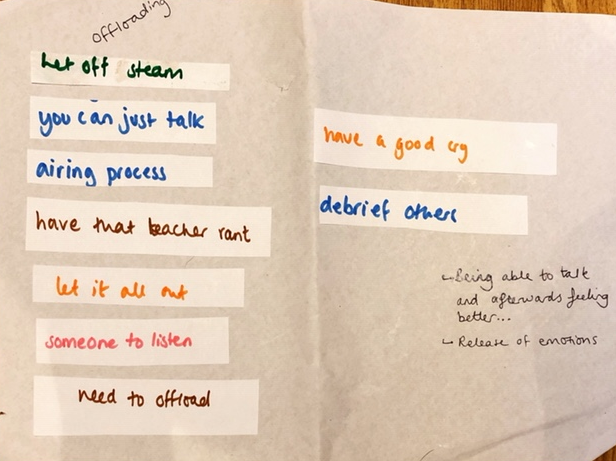 offloading
Let off steam
you can just talk
airing process
have that teacher rant
let it all out
someone to listen
need to offload
have a good cry
debrief others
- Being able to talk
and afterwards feeling
better...
- Release of emotions